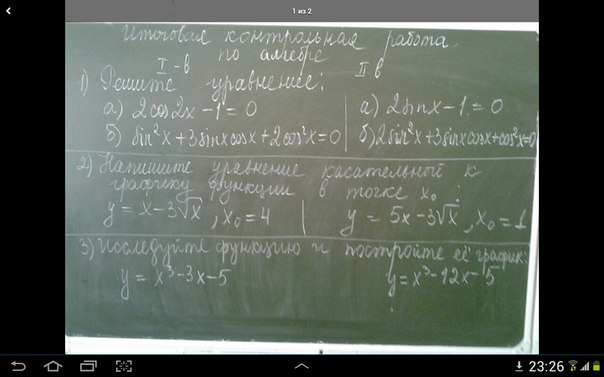 1 из 2
Итоговая контрольная работа
по алгебре
I-в II в
1) Решите уравнение:
а) 2cos2x-1=0 а) 2sinx-1=0
б) sin²x+3sinxcosx+2cos²x=0 б) 2sin²x+3sinxcosx+cos²x=0
2) Напишите уравнение касательной к
графику функции в точке x₀:
y=x-3√x, x₀=4 y=5x-3√x, x₀=1
3) Исследуйте функцию и постройте её график:
y=x³-3x-5 y=x³-12x-5
23:26